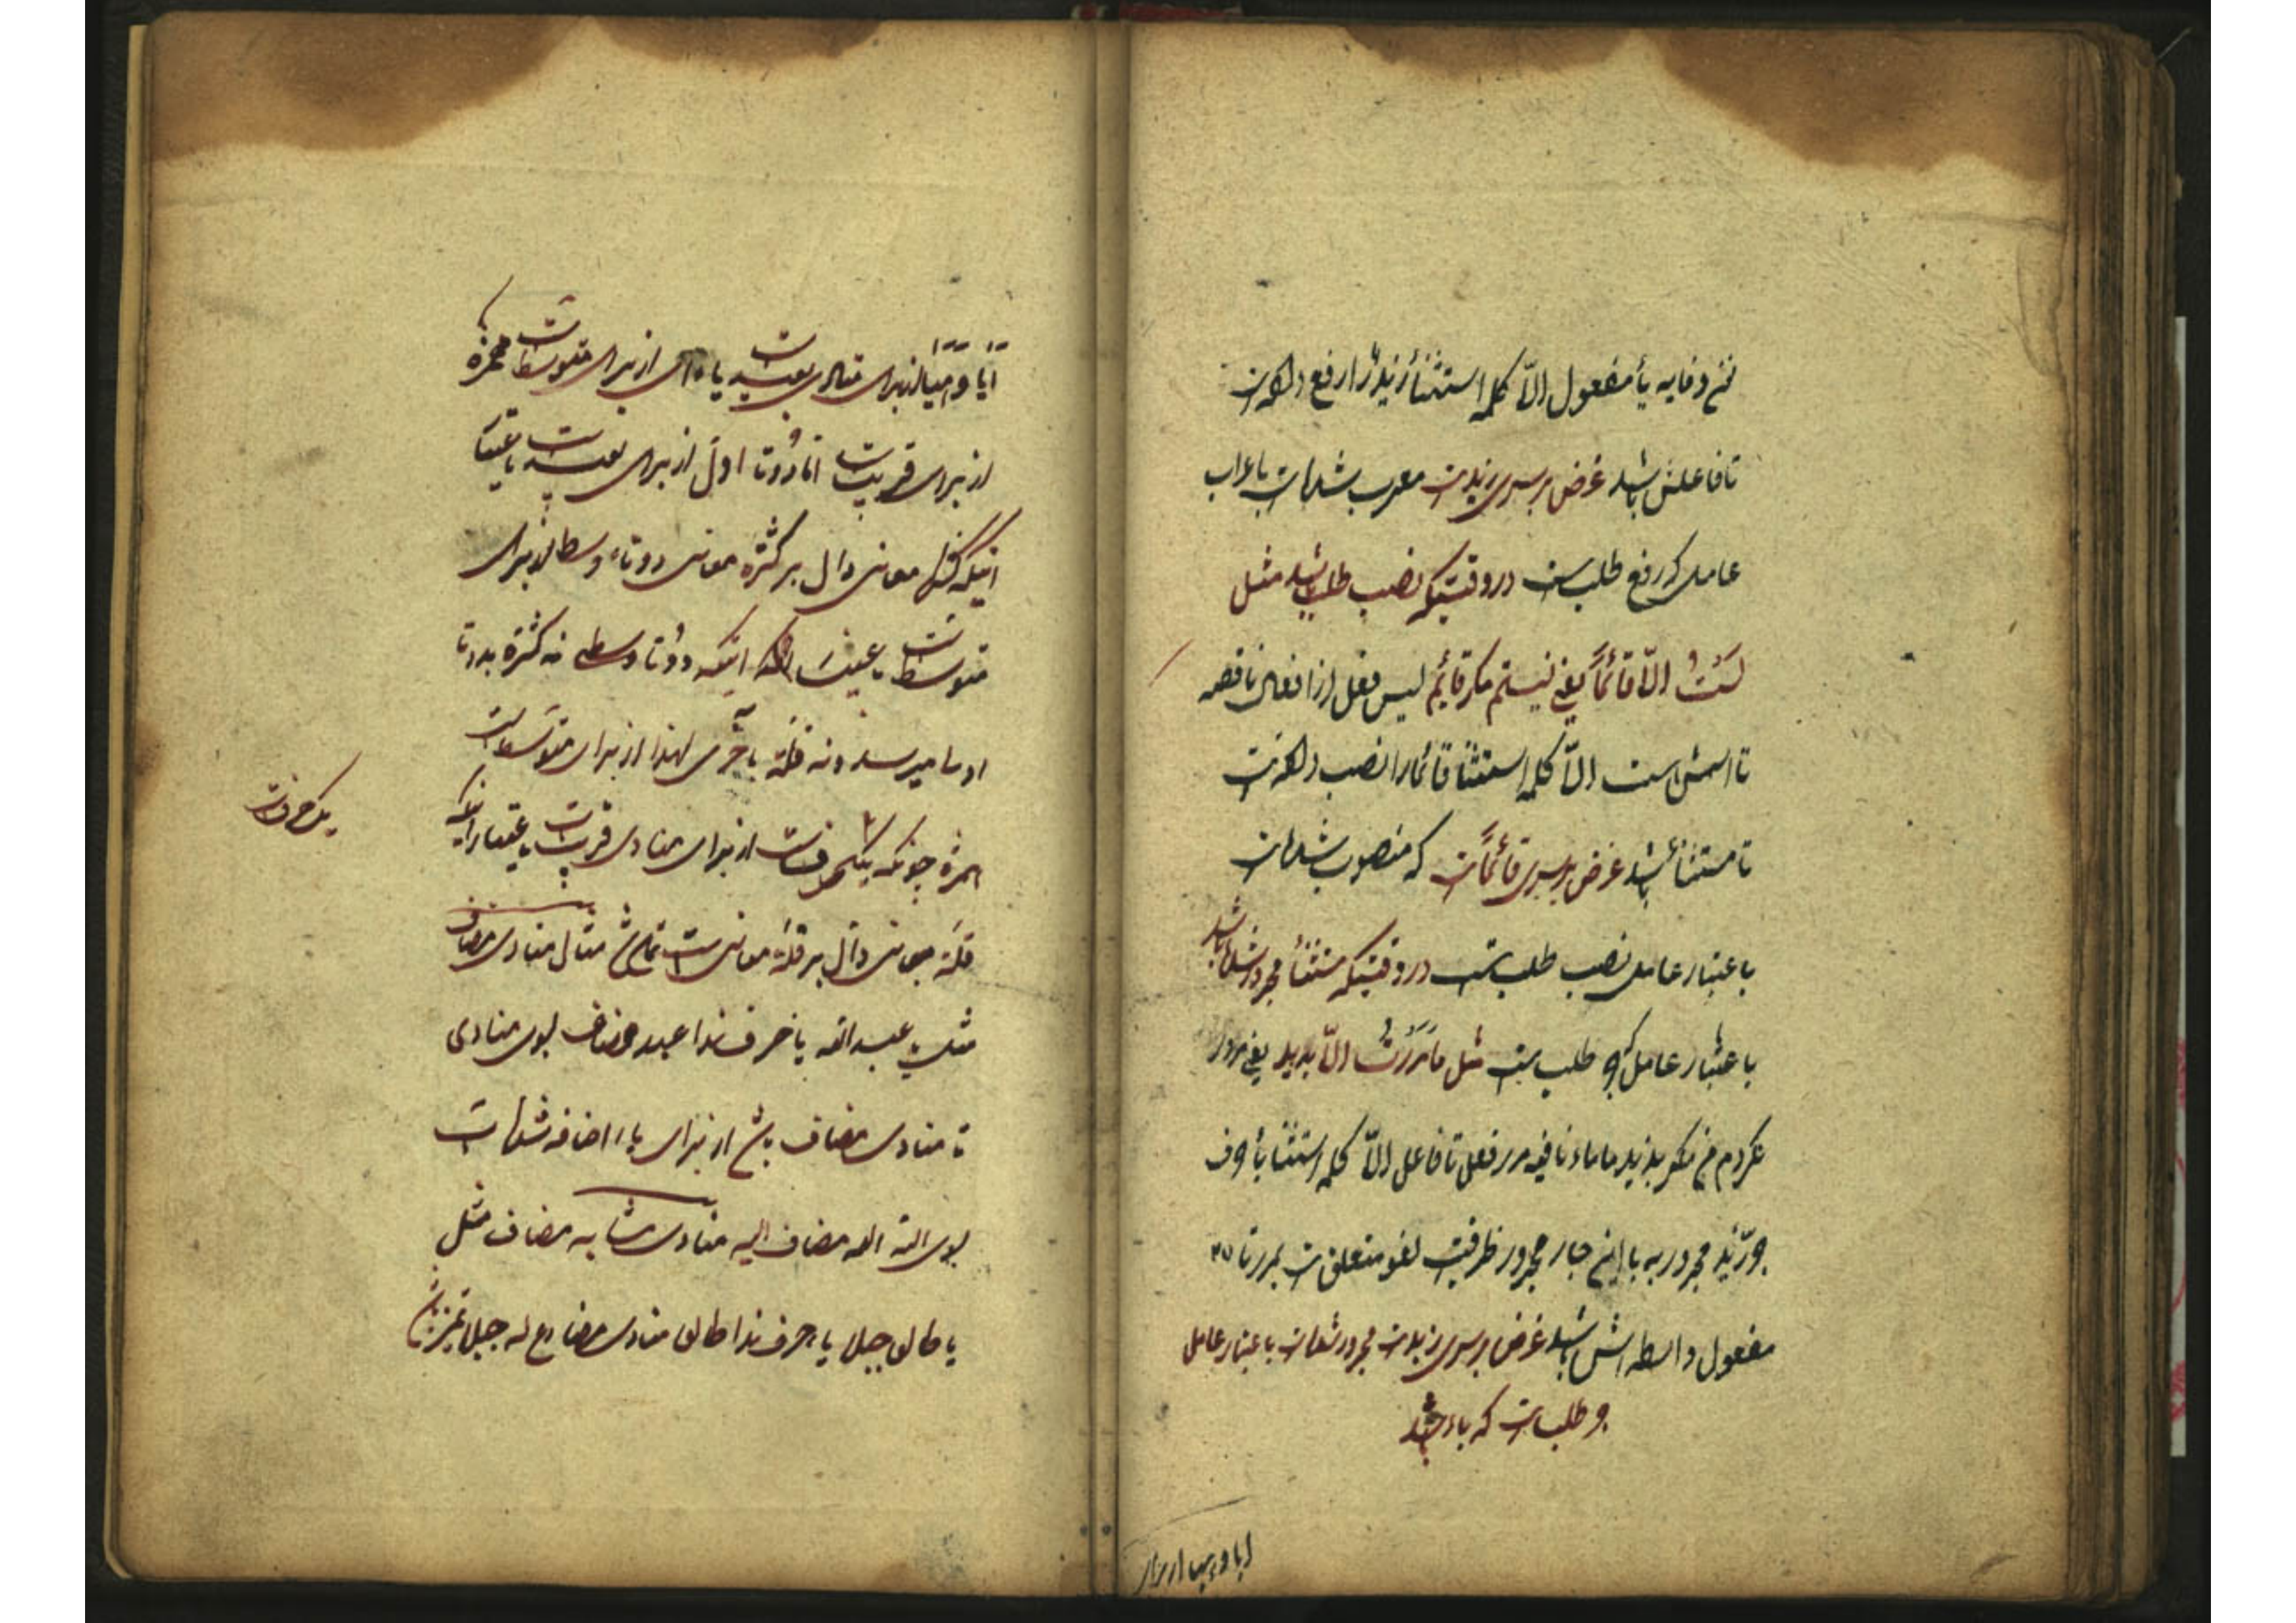 نون وقایه یأ مفعول الّا کلمه استثنأ زید را رفع داده است
تا فاعلش باشد غرض بر سر زید است معرب شده است باعراب
عامل که رفع طلب است در وقتیکه نصب طلب باشد مثل
لَسْتُ الّا قائماً یعنی نیستم مکر قائم لیس فعل از افعال ناقصه
تا اسمش است الّا کلمه استثنأ قائما را نصب داده است
تا مستثنأ باشد غرض بر سر قائماً است که منصوب شده است
باعتبار عامل نصب طلب است در وقتیکه مستثنأ مجرور شده باشد
باعتبار عامل جر طلب است مثل ما مَرَرْتُ الّا بزید یعنی مرور
نکردم من مکر بزید ما ماء نافیه مرر فعل تا فاعل الّا کلمه استثنا بأ حرف
جرّ زید مجرور به با این جار مجرور ظرفیت لغو متعلق است بمررت تا
مفعول واسطه اش باشد غرض بر سر زید است مجرور شده است باعتبار عامل
جر طلب است که باء باشد
ایا و هیا از برای
اَیا و هَیا از برای منادی بعید است یا و ای از برای متوسط است همزه
از برای قریب است اما دو تا اول از برای بعید است باعتبار
اینکه معانی دال بر کثرة معانی دو تاء وسط از برای
متوسط است باعتبار اینکه دو تا وسطی نه کثرة بدو تا
اولی میرسد و نه قلّة بآخری لهذا از برای متوسط است
همزه چونکه یکحرف است از برای منادی قریب است باعتبار اینکه
قلّة مبانی دالّ بر قلّة معانی است مثال منادی مضاف
مثل یا عبد الله یا حرف ندا عبد مضاف بسوی منادی
تا منادی مضاف باشد از برای یا اضافه شده است
بسوی الله الله مضاف الیه منادی مشابه مضاف مثل
یا طالعا جبلا یا حرف ندا طالعا منادی مضارع له جبلا
یک حرف است